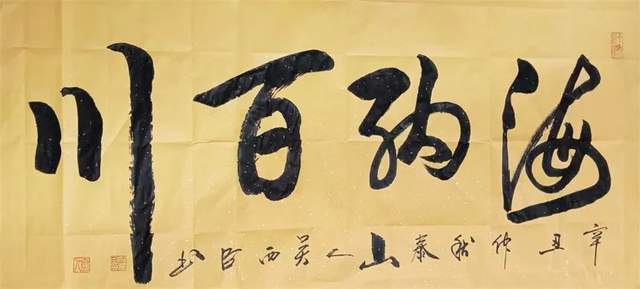 海纳百川
辛丑仲秋泰山人吴西臣书